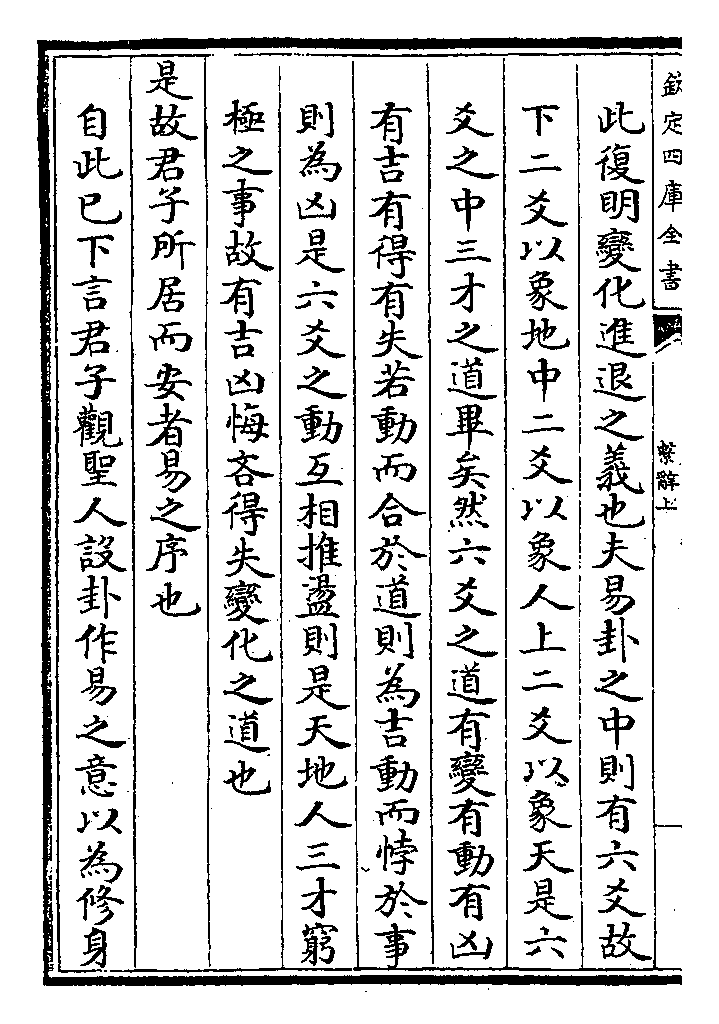 欽定四庫全書
繫辭上
此復明變化進退之義也夫易卦之中則有六爻故
下二爻以象地中二爻以象人上二爻以象天是六
爻之中三才之道畢矣然六爻之道有變有動有凶
有吉有得有失若動而合於道則為吉動而悖於事
則為凶是六爻之動互相推盪則是天地人三才窮
極之事故有吉凶悔吝得失變化之道也
是故君子所居而安者易之序也
自此已下言君子觀聖人設卦作易之意以為修身